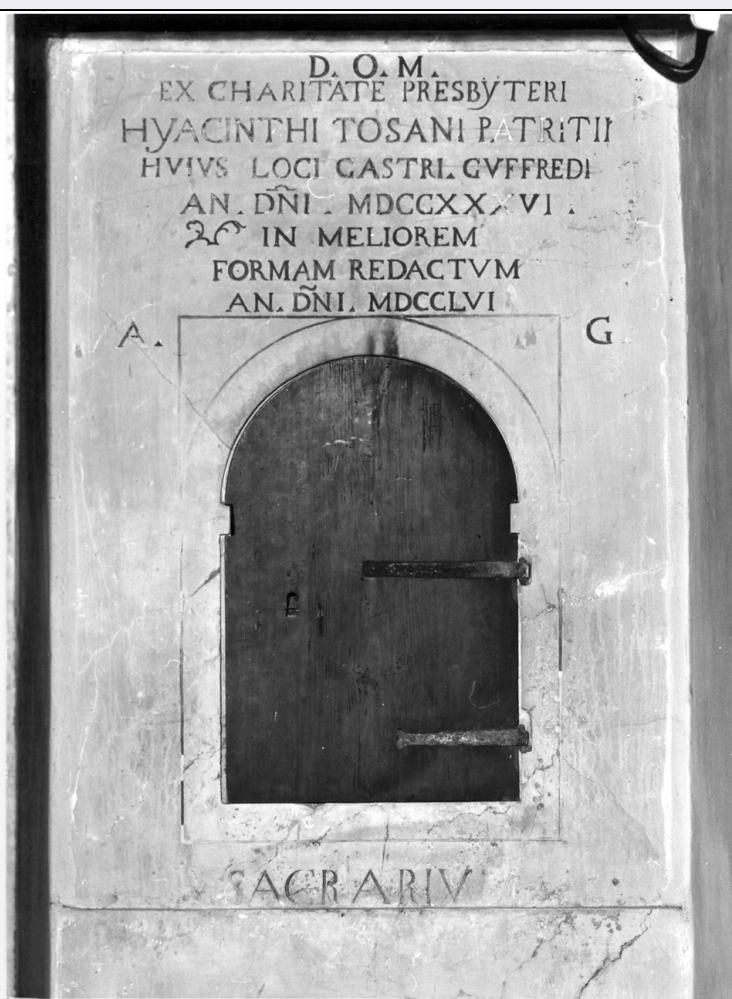 D. O. M.
EX CHARITATE PRESByTERI
HyACINTHI TOSANI PATRITII
HVIVS LOCI CASTRI. GVFFREDI
AN. DÑI. MDCCXXXVI.
IN MELIOREM
FORMAM REDACTVM
AN. DÑI. MDCCLVI
A. G
SACRARIV